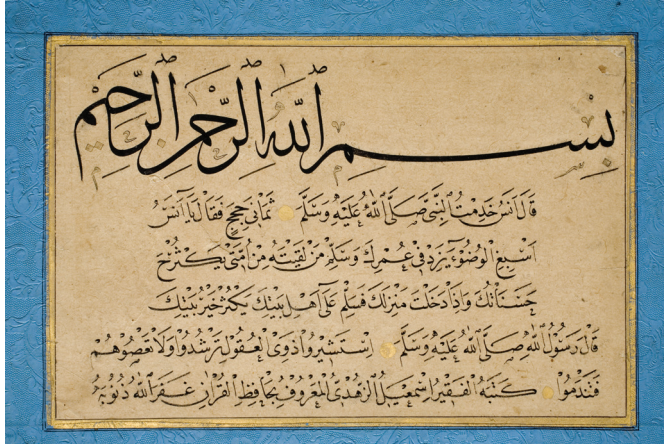 بسم الله الرحمن الرحيم
قال انس خدمت النبي صلى الله عليه وسلم ثماني حجج فقال يا انس
اسبغ الوضوء يزد في عمرك وسلم من لقيته من امتي يكثر نح
حسناتك واذا دخلت منزلك فسلم على اهل بيتك يكثر خير بيتك
قال رسول الله صلى الله عليه وسلم استشيروا ذوي العقول ترشدوا ولا تعصوهم
فتندموا كتبه الفقير اسمعيل الزهدي المعروف بحافظ القران غفر الله ذنوبه